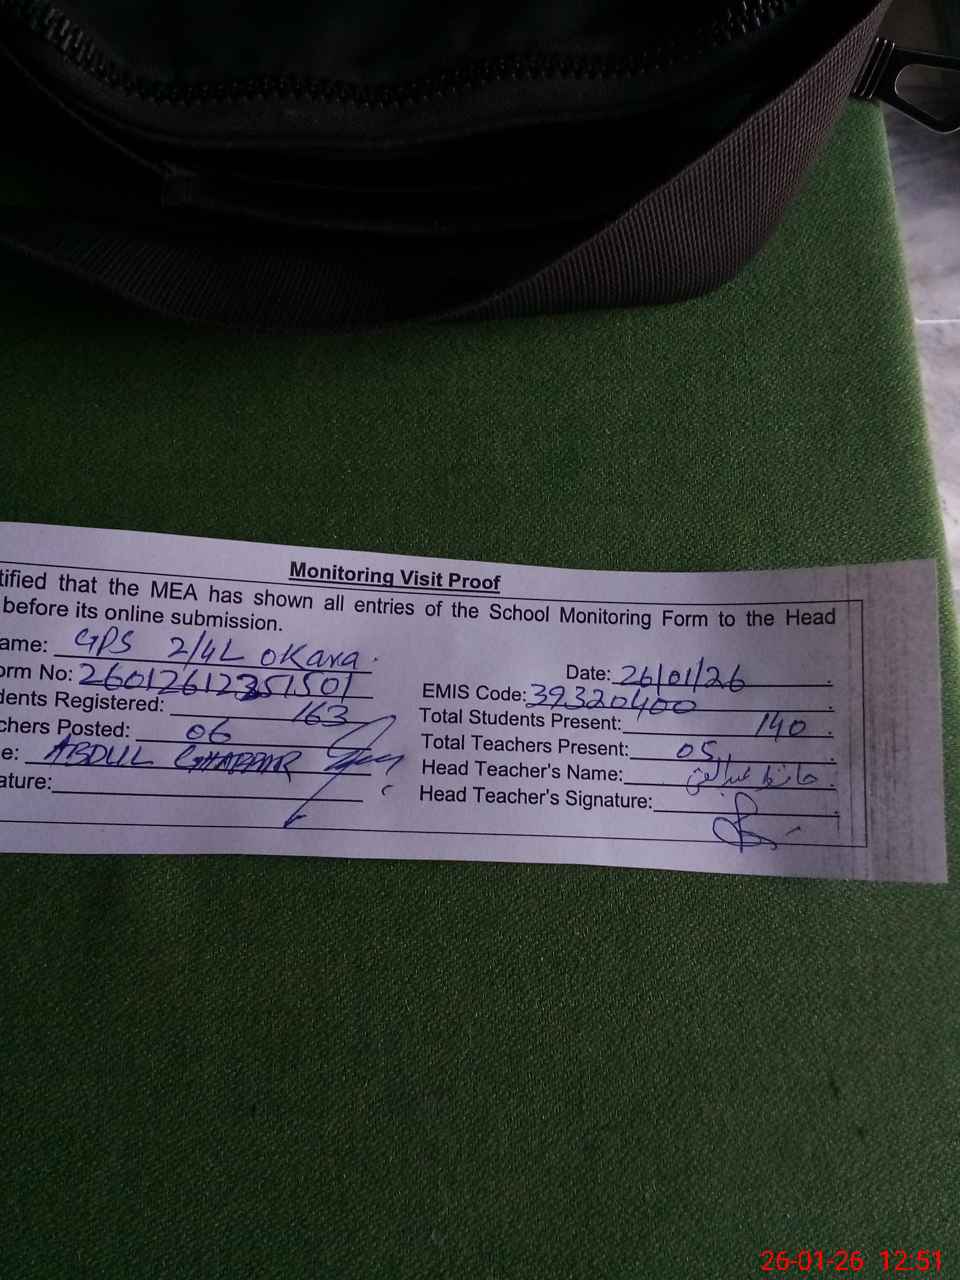 Monitoring Visit Proof
tified that the MEA has shown all entries of the School Monitoring Form to the Head
before its online submission.
ame: GPS 2/4L OKara.
Date: 26/01/26
orm No: 26012612351501
EMIS Code: 39320400
dents Registered: 163
Total Students Present: 140
chers Posted: 06
Total Teachers Present: 05
e: ABDUL GHAFFAR
Head Teacher's Name: حافظ
ature:
Head Teacher's Signature:
26-01-26 12:51